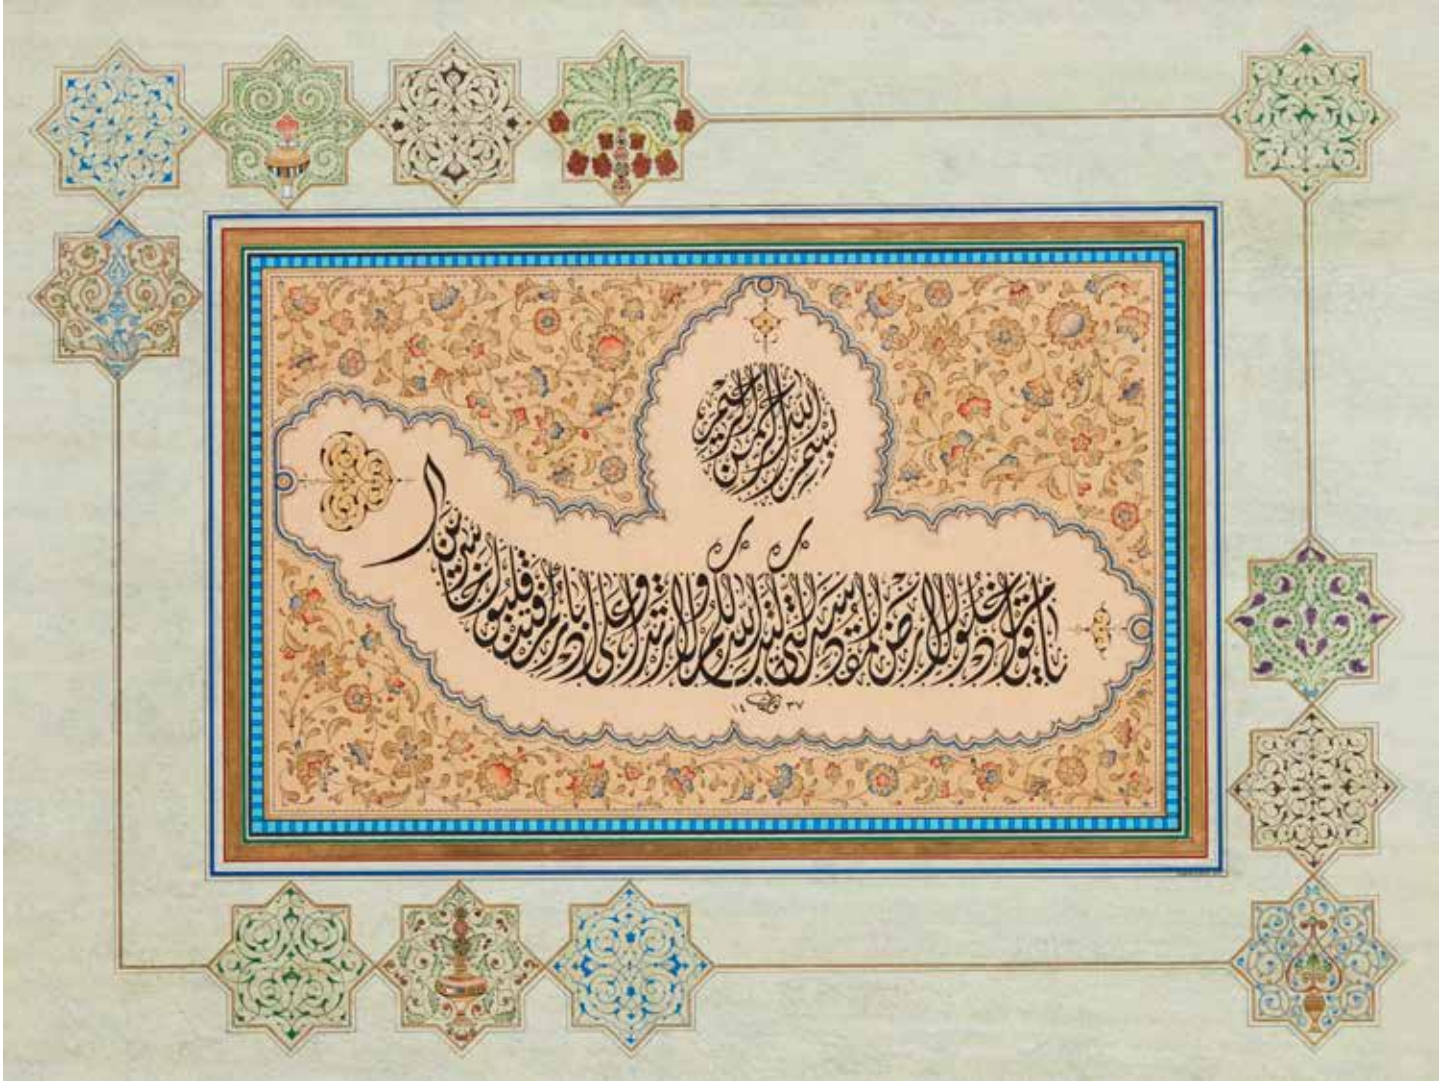 بسم الله الرحمن الرحيم
يا قوم ادخلوا الأرض المقدسة التي كتب الله لكم ولا ترتدوا على أدباركم فتنقلبوا خاسرين
١٤٣٧